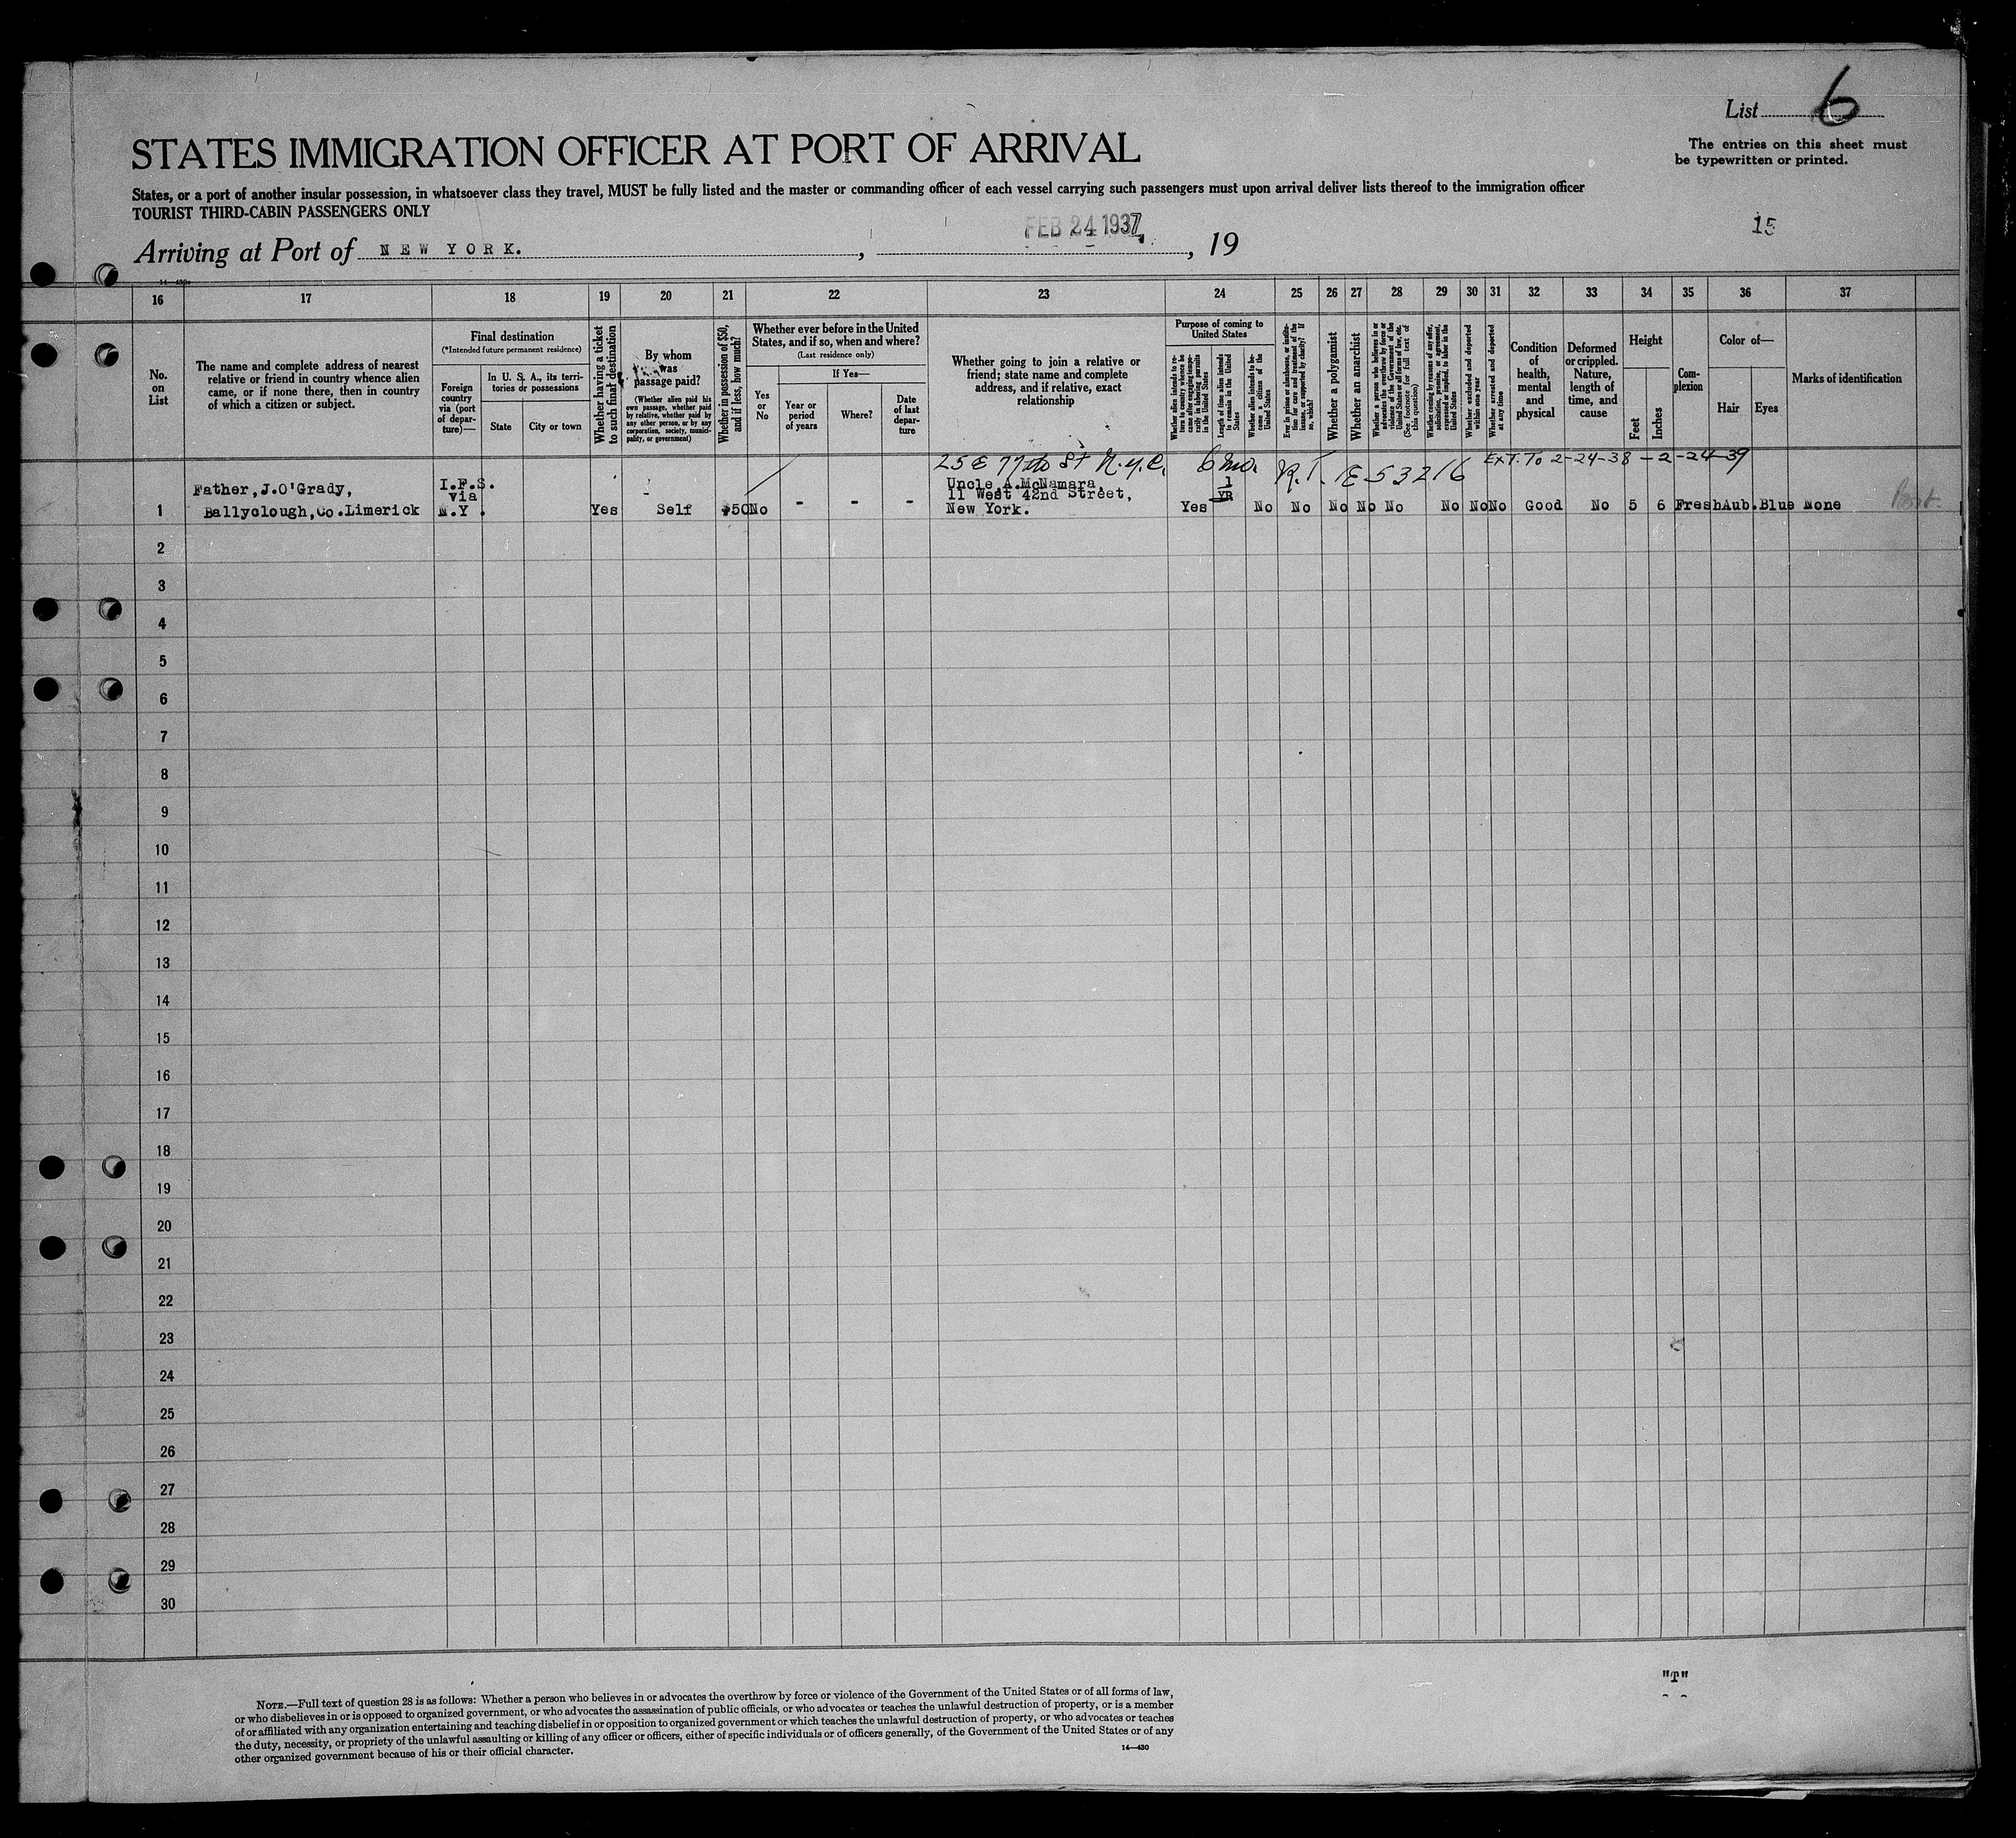 List 6
The entries on this sheet must
be typewritten or printed.
STATES IMMIGRATION OFFICER AT PORT OF ARRIVAL
States, or a port of another insular possession, in whatsoever class they travel, MUST be fully listed and the master or commanding officer of each vessel carrying such passengers must upon arrival deliver lists thereof to the immigration officer
TOURIST THIRD-CABIN PASSENGERS ONLY
15
Arriving at Port of NEW YORK. , FEB 24 1937 , 19
16 17 18 19 20 21 22 23 24 25 26 27 28 29 30 31 32 33 34 35 36 37
No. on List
The name and complete address of nearest
relative or friend in country whence alien
came, or if none there, then in country
of which a citizen or subject.
Final destination
(*Intended future permanent residence)
Foreign
country
via (port
of depar-
ture)—
In U. S. A., its terri-
tories or possessions
State
City or town
Whether having a ticket
to such final destination
By whom
was
passage paid?
(Whether alien paid his
own passage, whether paid
by relative, whether paid by
any other person, or by any
corporation, society, munici-
pality, or government)
Whether in possession of $50,
and if less, how much?
Whether ever before in the United
States, and if so, when and where?
(Last residence only)
Yes
or
No
If Yes—
Year or
period
of years
Where?
Date
of last
depar-
ture
Whether going to join a relative or
friend; state name and complete
address, and if relative, exact
relationship
Purpose of coming to
United States
Whether alien intends to re-
turn to country whence he
came after engaging tempo-
rarily in laboring pursuits
in the United States
Length of time alien intends
to remain in the United
States
Whether alien intends to be-
come a citizen of the
United States
Ever in prison or almshouse, or institu-
tion for care and treatment of the
insane, or supported by charity? If
so, which?
Whether a polygamist
Whether an anarchist
Whether a person who believes in or
advocates the overthrow by force or
violence of the Government of the
United States or all forms of law, etc.
(See footnote for full text of
this question)
Whether coming by reasons of any offer,
solicitation, promise, or agreement,
expressed or implied, to labor in the
United States
Whether excluded and deported
within one year
Whether arrested and deported
at any time
Condition
of
health,
mental
and
physical
Deformed
or crippled.
Nature,
length of
time, and
cause
Height
Feet
Inches
Com-
plexion
Color of—
Hair
Eyes
Marks of identification
25 E 77th St N.Y.C. 6 mo. R.T. 1E53216 Ext. To 2-24-38 - 2-24-39
Father, J.O'Grady, I.F.S. Uncle A.McNamara 1
via 11 West 42nd Street, YR
1 Ballyclough, Co.Limerick N.Y. Yes Self $50 No - - - New York. Yes No No No No No No No No Good No 5 6 Fresh Aub. Blue None
2
3
4
5
6
7
8
9
10
11
12
13
14
15
16
17
18
19
20
21
22
23
24
25
26
27
28
29
30
"T"
NOTE.—Full text of question 28 is as follows: Whether a person who believes in or advocates the overthrow by force or violence of the Government of the United States or of all forms of law,
or who disbelieves in or is opposed to organized government, or who advocates the assassination of public officials, or who advocates or teaches the unlawful destruction of property, or is a member
of or affiliated with any organization entertaining and teaching disbelief in or opposition to organized government or which teaches the unlawful destruction of property, or who advocates or teaches
the duty, necessity, or propriety of the unlawful assaulting or killing of any officer or officers, either of specific individuals or of officers generally, of the Government of the United States or of any
other organized government because of his or their official character.
14—430